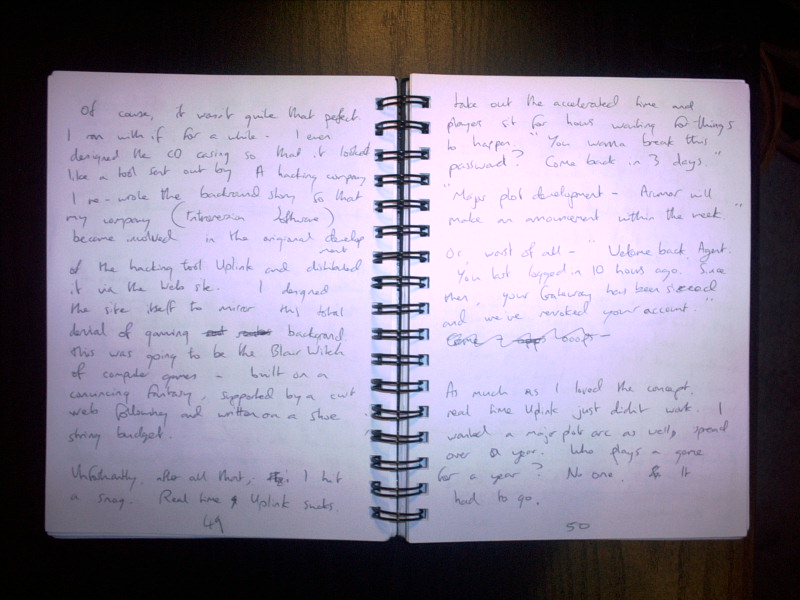 Of course, it wasn't quite that perfect.
I ran with it for a while... I even
designed the CD casing so that it looked
like a tool sent out by A hacking company
I re-wrote the background story so that
my company (Introversion Software)
became involved in the origional develop
ment
of the hacking tool Uplink and distributed
it via the web site. I designed
the site itself to mirror this total
denial of gaming background
this was going to be the Blair Witch
of computer games - built on a
convincing fantasy, supported by a cult
web following and written on a shoe
string budget.
Unfortunantly, after all that, I hit
a snag. Real time Uplink sucks.
49
take out the accelerated time and
players sit for hours waiting for things
to happen. "You wanna break this
password? Come back in 3 days."
"Major plot development - Arunmor will
make an announcement within the week."
Or, worst of all - "Welcome back Agent.
You last logged in 10 hours ago. Since
then, your Gateway has been siezed
and we've revoked your account."
ooops -
As much as I loved the concept,
real time Uplink just didn't work. I
wanted a major plot arc as well, spread
over a year. Who plays a game
for a year? No one. It
had to go.
50